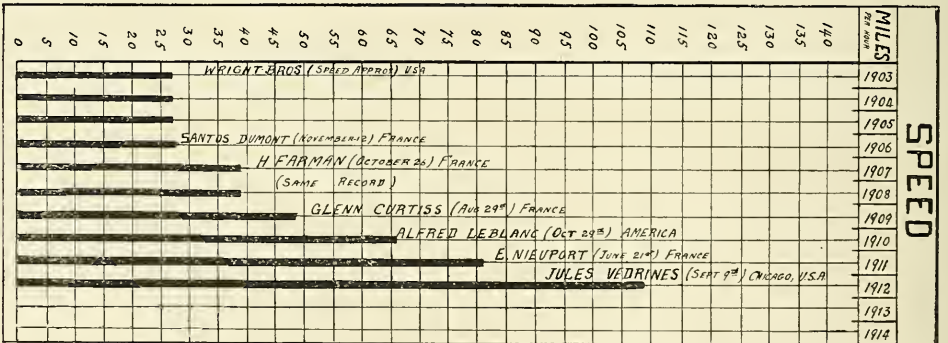 MILES
PER HOUR
0 5 10 15 20 25 30 35 40 45 50 55 60 65 70 75 80 85 90 95 100 105 110 115 120 125 130 135 140
SPEED
WRIGHT BROS (SPEED APPROX) USA
1903
1904
1905
SANTOS DUMONT (NOVEMBER 12) FRANCE
1906
H FARMAN (OCTOBER 26) FRANCE
1907
(SAME RECORD)
1908
GLENN CURTISS (AUG 29th) FRANCE
1909
ALFRED LEBLANC (OCT 29th) AMERICA
1910
E. NIEUPORT (JUNE 21st) FRANCE
1911
JULES VEDRINES (SEPT 9th) CHICAGO, U.S.A.
1912
1913
1914